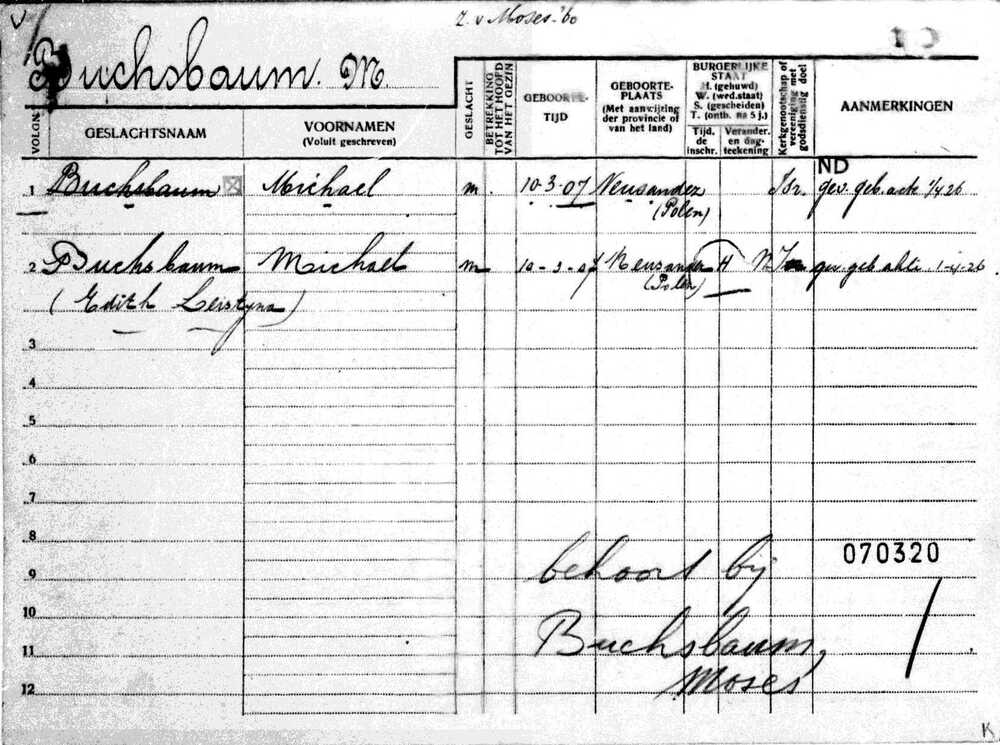 Z. v Moses '60
Buchsbaum. M.
VOLGN.
GESLACHTSNAAM
VOORNAMEN
(Voluit geschreven)
GESLACHT
BETREKKING
TOT HET HOOFD
VAN HET GEZIN
GEBOORTE-
TIJD
GEBOORTE-
PLAATS
(Met aanwijzing
der provincie of
van het land)
BURGERLIJKE
STAAT
H. (gehuwd)
W. (wed.staat)
S. (gescheiden)
T. (ontb. na 5 j.)
Tijd.
de
inschr.
Verander.
en dag-
teekening
Kerkgenootschap of
vereeniging met
godsdienstig doel
AANMERKINGEN
ND
1 Buchsbaum Michael m. 10-3-07 Neusandez Isr. gev. geb. acte 1/4 26
(Polen)
2 Buchsbaum Michael m 10-3-07 Neusandez H N gev. geb. akte 1-4-26
(Polen)
(Edith Lerstyna)
3
4
5
6
7
8
070320
behoort bij
9
10
Buchsbaum,
11
Moses
12
K